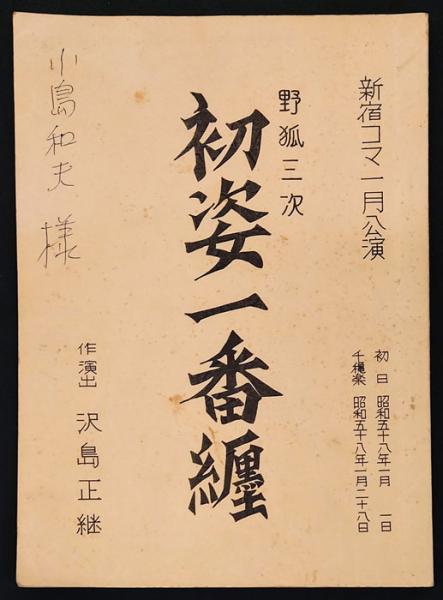 新宿コマ一月公演
初日 昭和五十八年一月 一日
千穐楽 昭和五十八年一月二十八日
野狐三次
初姿一番纏
作演出 沢島正継
小島和夫 様